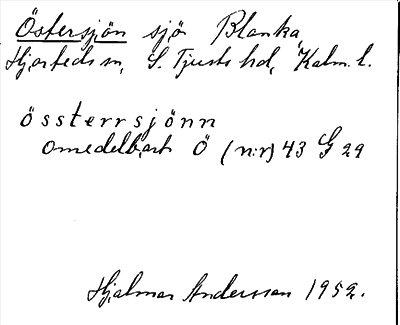 Östersjön sjö Blanka,
Hjorteds sn, S. Tjusts hd, Kalm. l.
össterrsjönn
omedelbart Ö (n:r) 43 G 29
Hjalmar Andersson 1959.